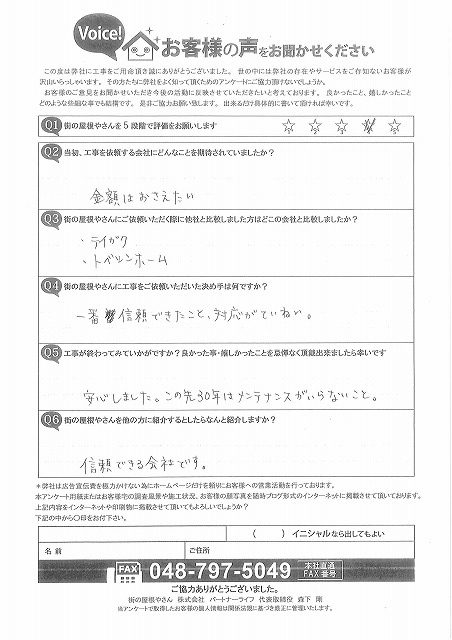 Voice!
お客様の声をお聞かせください
この度は弊社に工事をご用命頂き誠にありがとうございました。世の中には弊社の存在やサービスをご存知ないお客様が
沢山いらっしゃいます。その方たちに弊社をよく知って頂くためのアンケートにご協力頂けないでしょうか。
お客様のご意見をお聞かせいただき今後の活動に反映させていただきたいと考えております。良かったこと、嬉しかったこと
どのような些細な事でも結構です。是非ご協力お願い致します。出来るだけ具体的に書いて頂ければ幸いです。
Q1 街の屋根やさんを5段階で評価をお願いします
1 2 3 4 5
Q2 当初、工事を依頼する会社にどんなことを期待されていましたか?
金額はおさえたい
Q3 街の屋根やさんにご依頼いただく際に他社と比較しました方はどこの会社と比較しましたか?
・テイガク
・トベシンホーム
Q4 街の屋根やさんに工事をご依頼いただいた決め手は何ですか?
一番信頼できたこと、対応がていねい。
Q5 工事が終わってみていかがですか?良かった事・嬉しかったことを忌憚なく頂戴出来ましたら幸いです
安心しました。この先30年はメンテナンスがいらないこと。
Q6 街の屋根やさんを他の方に紹介するとしたらなんと紹介しますか?
信頼できる会社です。
＊弊社は広告宣伝費を極力かけない為にホームページだけを頼りにお客様への営業活動を行っております。
本アンケート用紙またはお客様宅の調査風景や施工状況、お客様の顔写真を随時ブログ形式のインターネットに掲載させて頂いております。
上記内容をインターネットや印刷物に掲載させて頂いてもよろしいでしょうか?
下記の中から○印をお付下さい。
( ) イニシャルなら出してもよい
名前 ご住所
FAX 048-797-5049 本社直通FAX番号
ご協力ありがとうございました。
街の屋根やさん 株式会社 パートナーライフ 代表取締役 森下 剛
※アンケートで取得したお客様の個人情報は関係法規に基づき厳正に管理いたします。